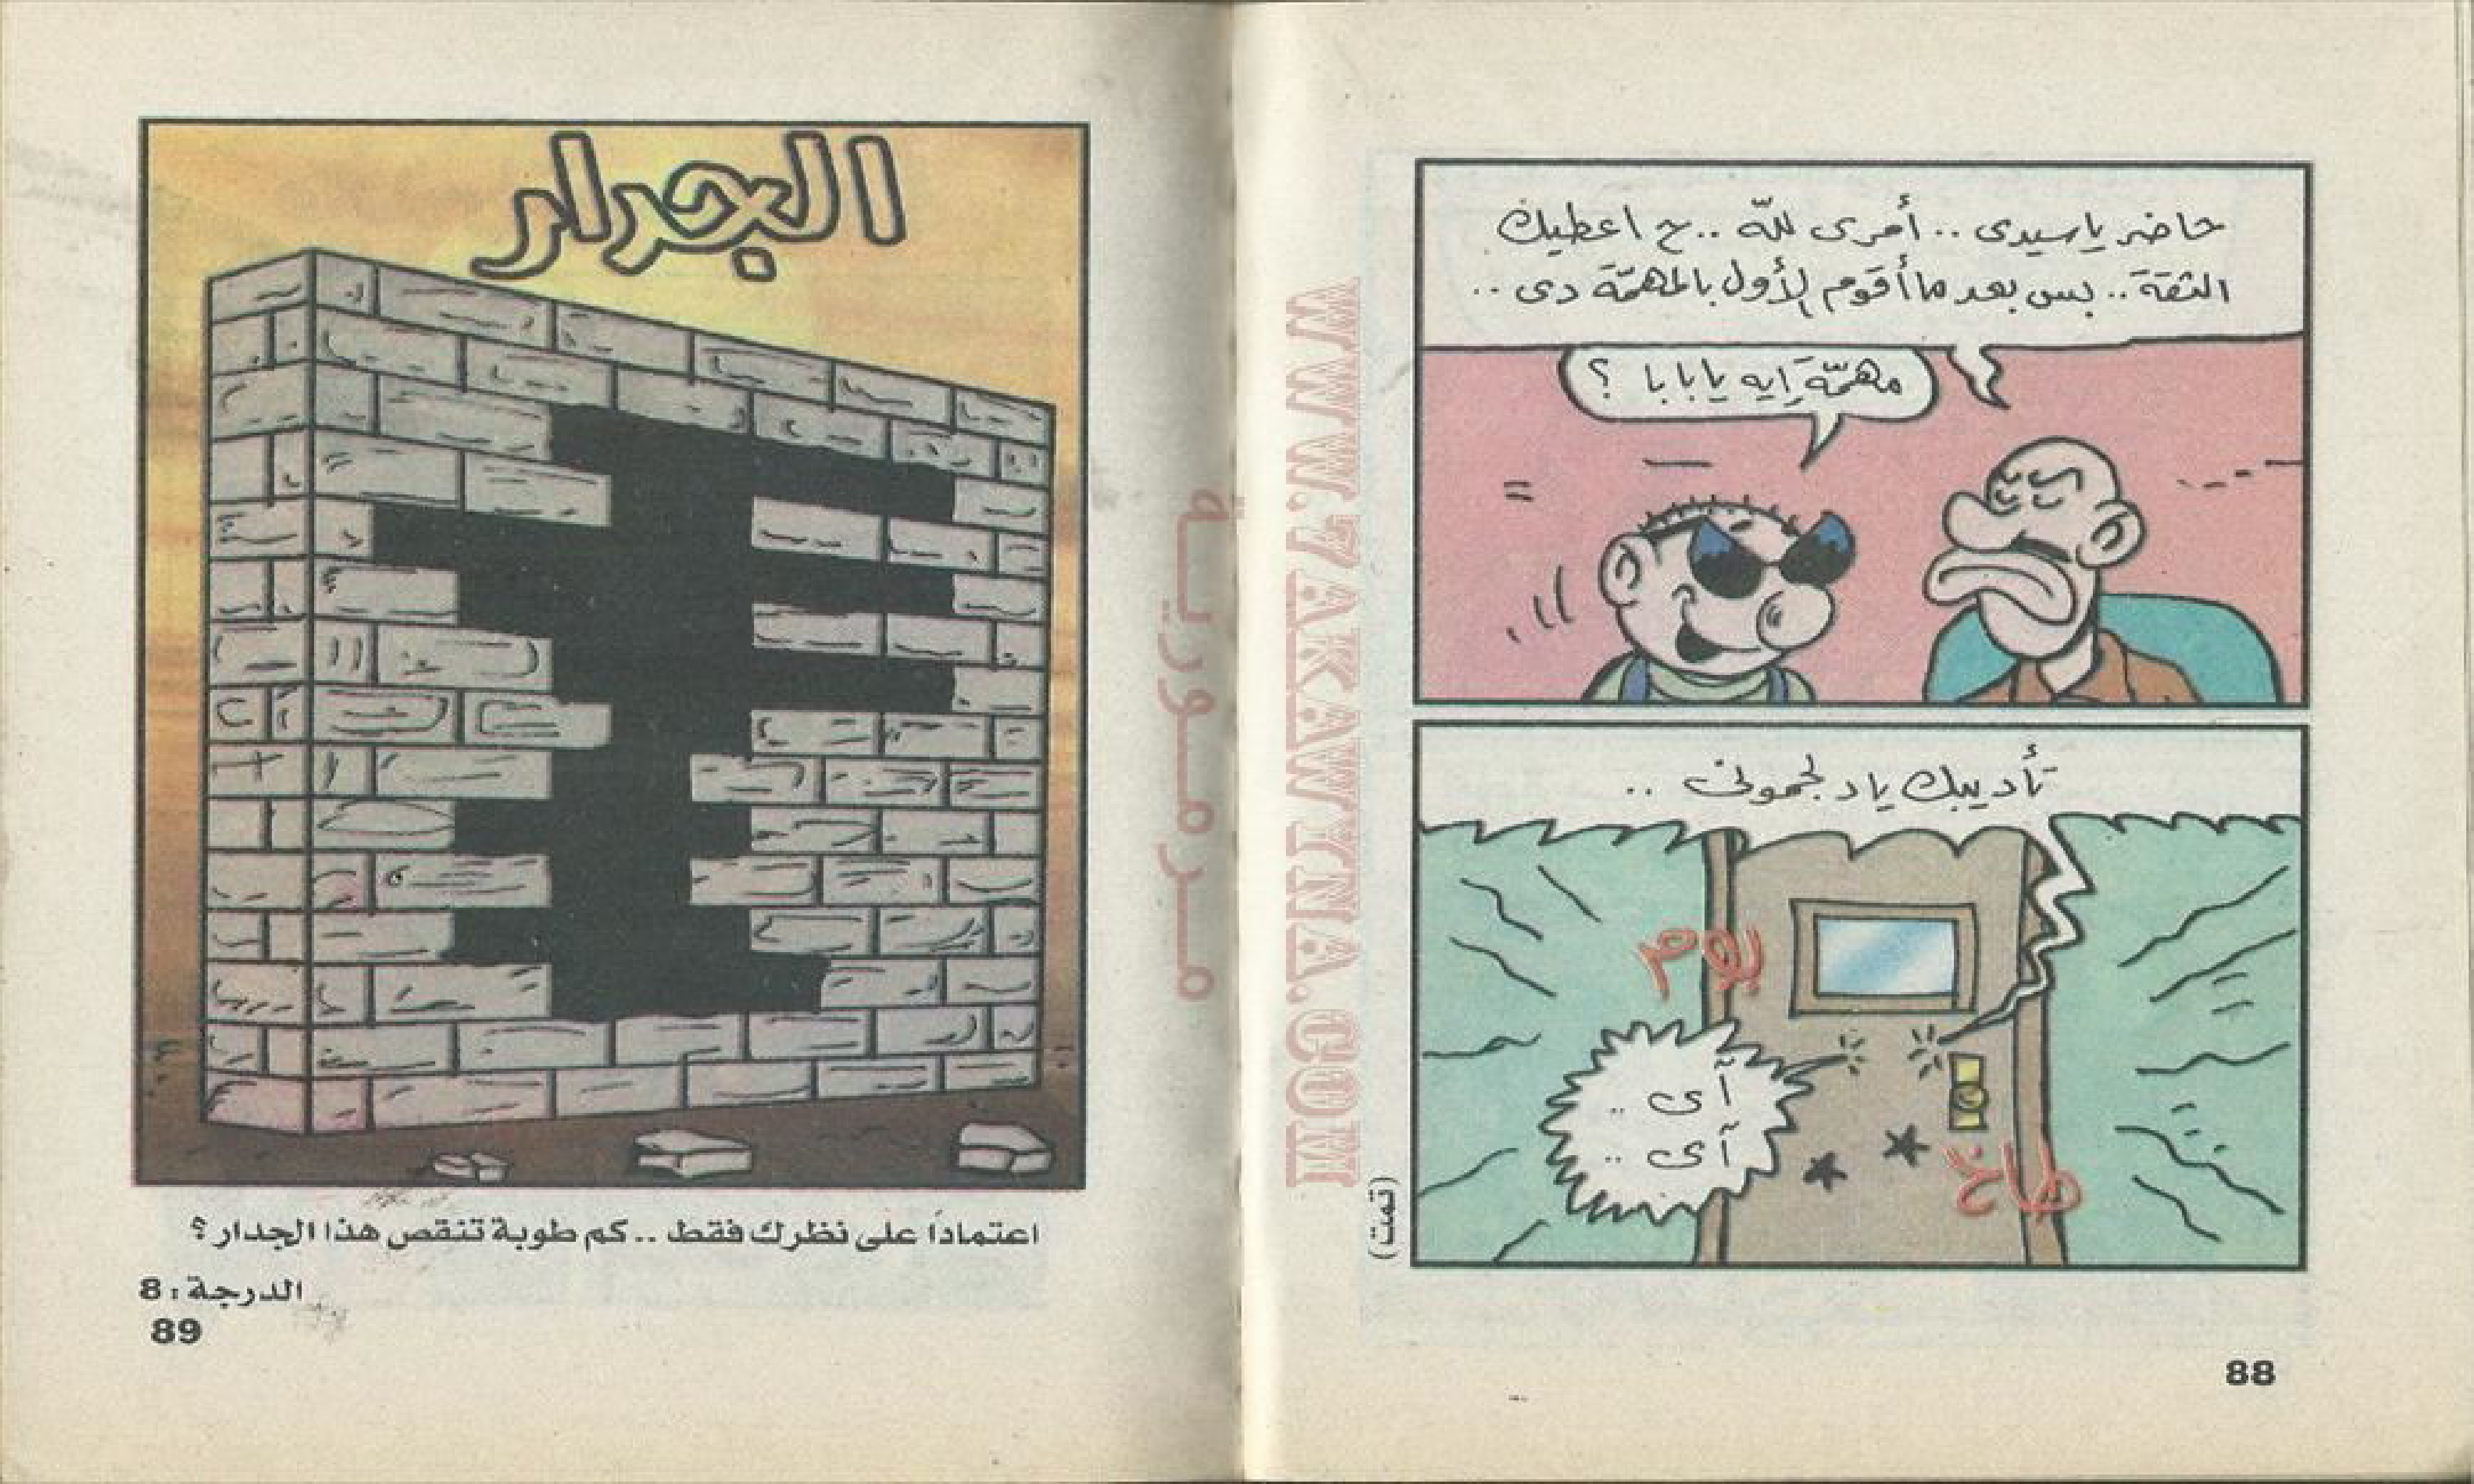 حاضر ياسيدى .. أمرى لله .. ح اعطيك
الثقة .. بس بعد ما أقوم الأول بالمهمّة دى ..
مهمّة إيه يا بابا ؟
تأديبك ياد لجمونى ..
بوم
آى ..
آى ..
طاخ
(تمت)
88
WWW.7AKAWINA.COM
مرمورية
الجدار
اعتمادًا على نظرك فقط .. كم طوبة تنقص هذا الجدار ؟
الدرجة : 8
89